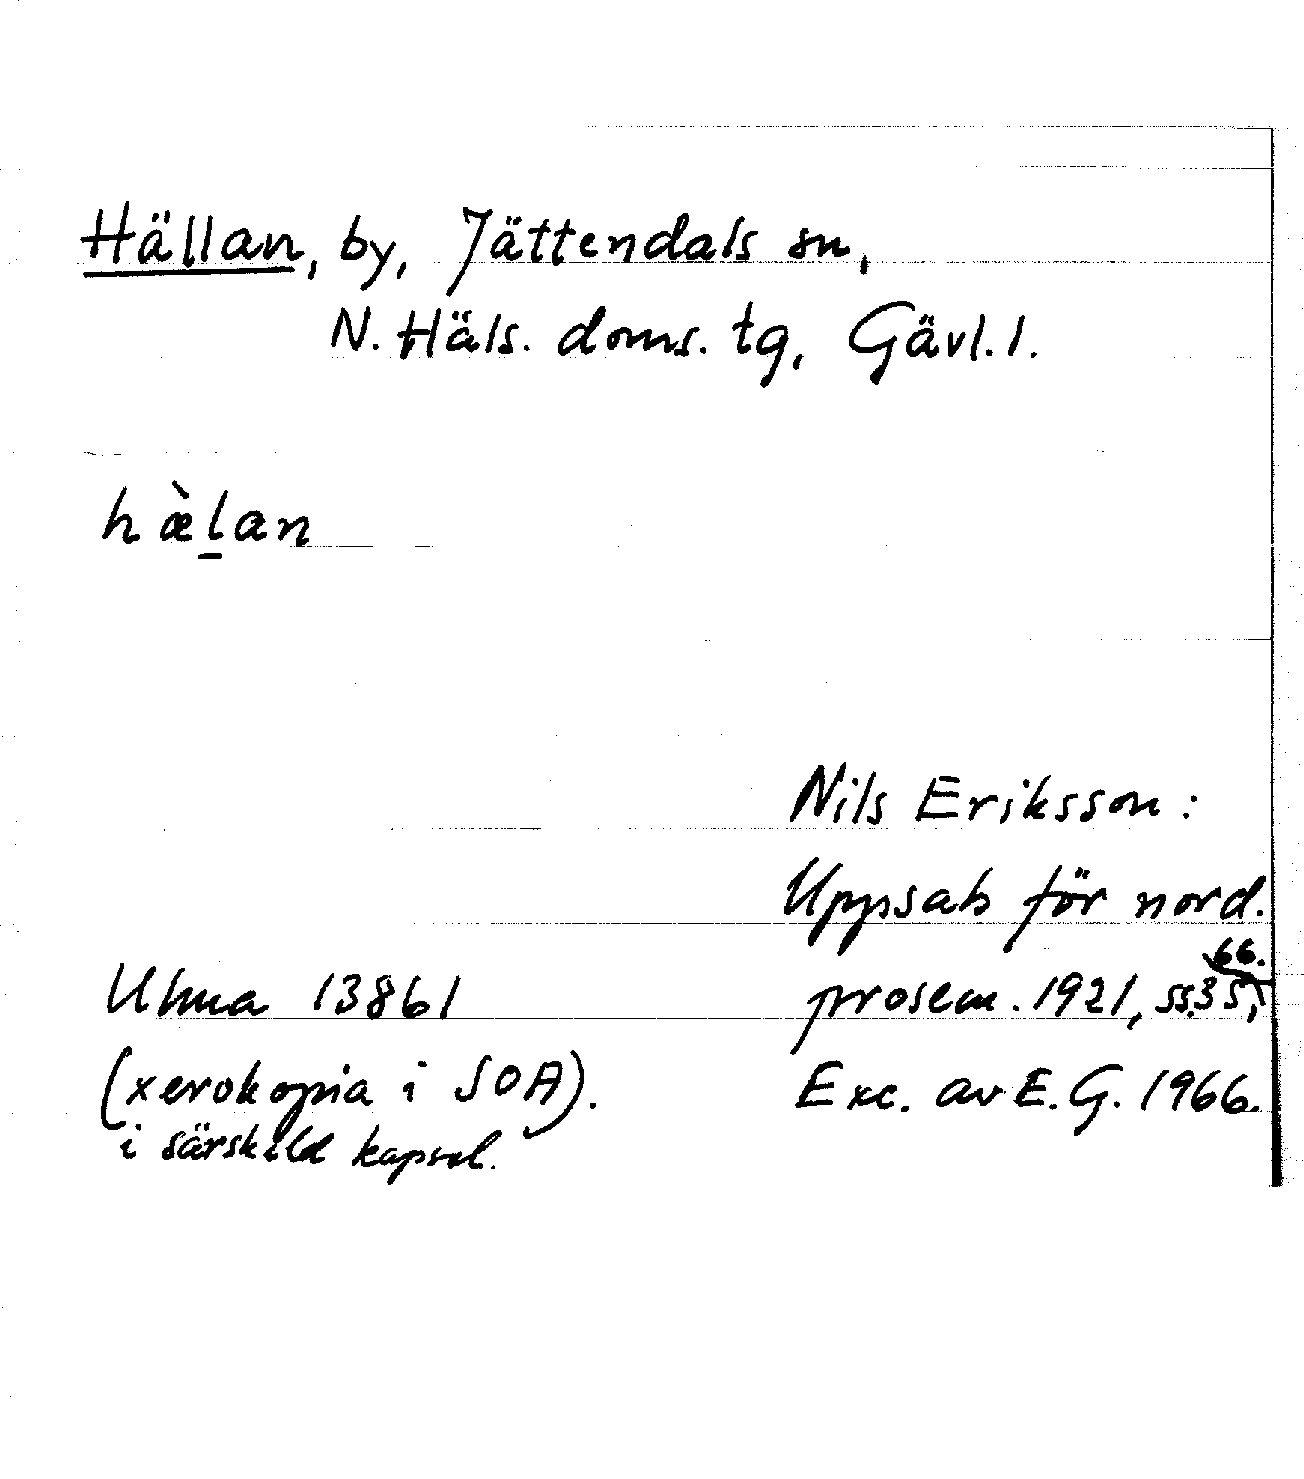 Hällan, by, Jättendals sn,
N. Häls. doms. tg, Gävl. l.
hæ̀l̠an
Nils Eriksson:
Uppsats för nord.
prosem. 1921, ss. 35, 66.
Exc. av E. G. 1966.
Ulma 13861
(xerokopia i SOA).
i särskild kapsel.